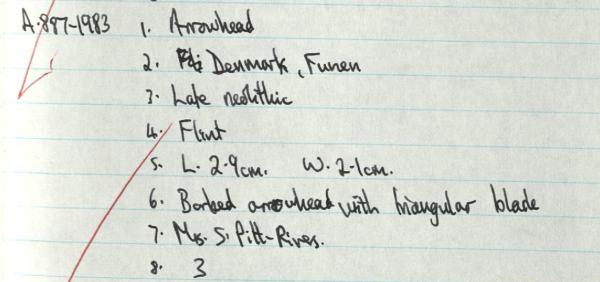 A.897-1983 1. Arrowhead
2. Denmark, Funen
3. Late neolithic
4. Flint
5. L. 2.9cm. W. 2.1cm.
6. Barbed arrowhead with triangular blade
7. Ms. S. Pitt-Rivers.
8. 3